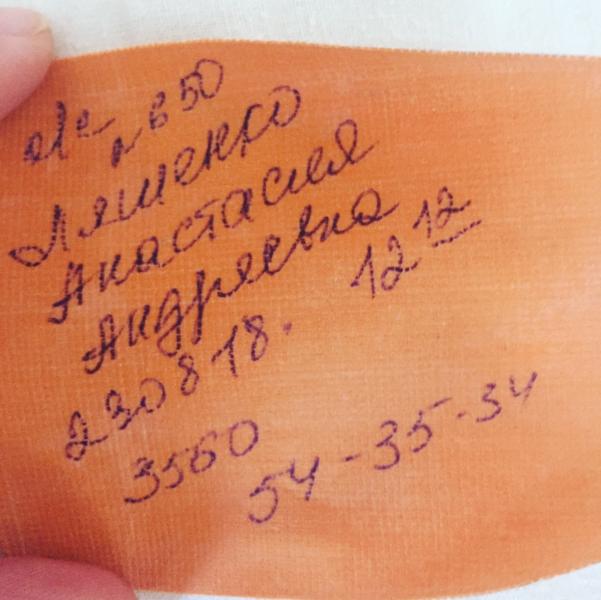 и/с n 650
Ляшенко
Анастасия
Андреевна
230818. 12 12
3560
54-35-34